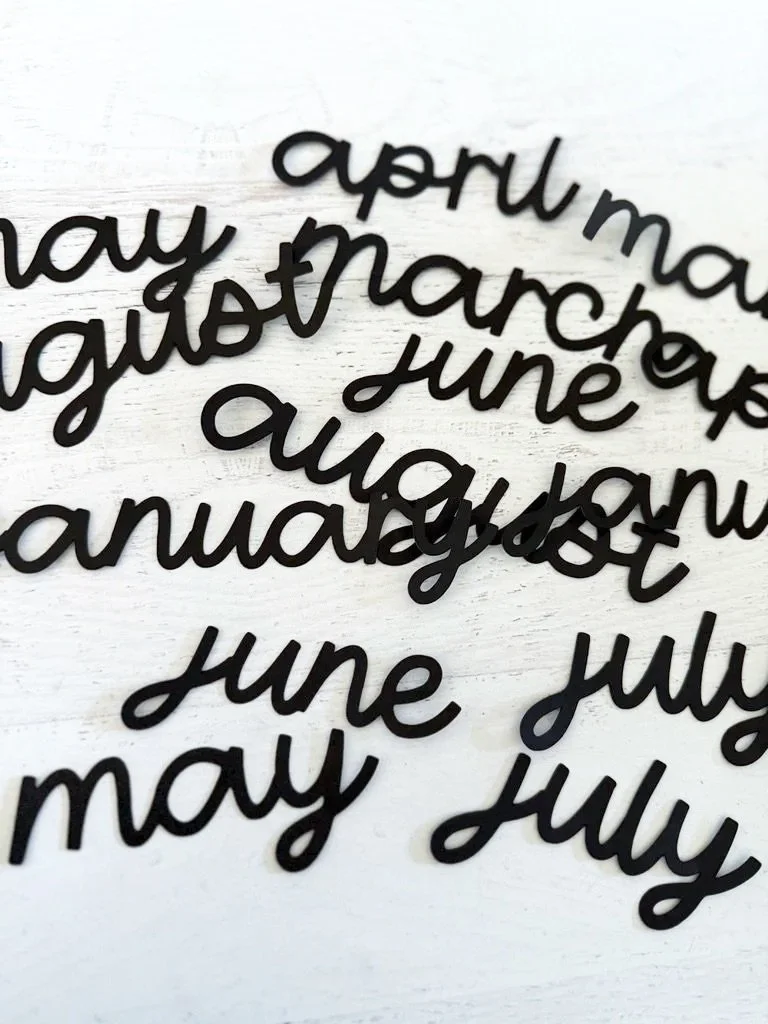 april
ma
may
march
august
june
ap
august
january
janu
june
july
may
july